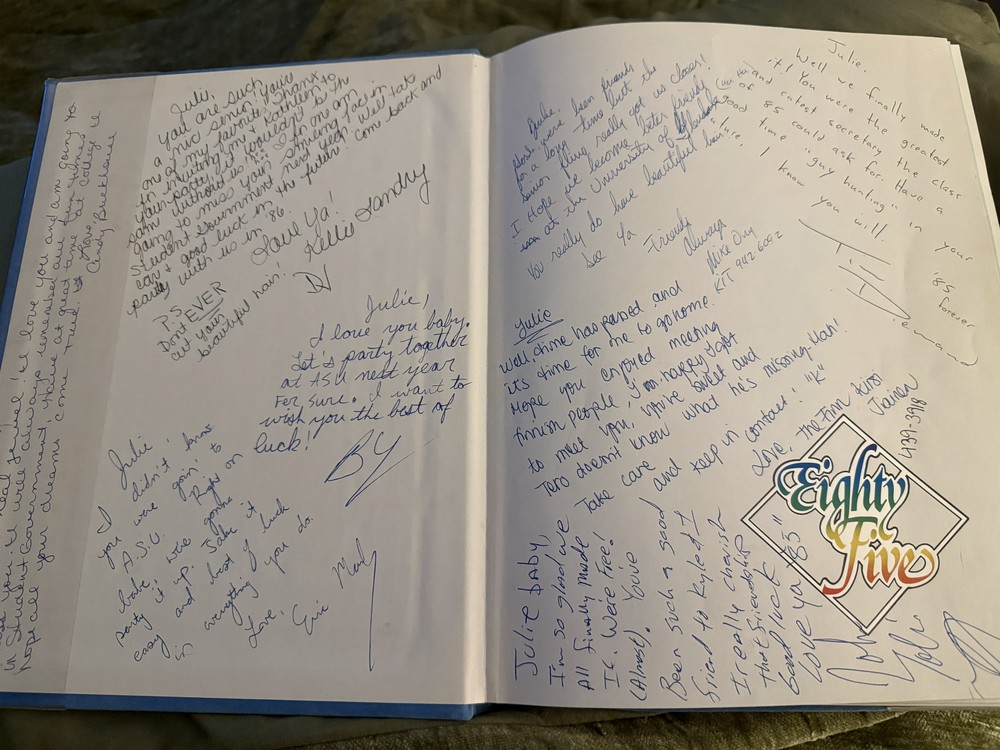 miss you.
in Student Government. You'll always remember all are fun times
Hope all your dreams come true. Have a great time at college
Love, Cindy Burkhard
Julie,
you are such
a nice senior, your
on of my favorite! Thank
for inviting me and Kathleen to
your party, it wouldn't be the
same without us!! I'm
going to miss your shining face in
Student Government next year. We'll take
care & good luck in the future. Come back and
party with us in '86.
Love Ya!
Kelli Landry
P.S
Don't EVER
cut your
beautiful hair!
Julie,
I love you baby.
Let's party together
at ASU next year
For sure. I want to
wish you the best of
luck!
BY
Julie
I didn't know
you were goin' to
A.S.U. Right on
babe, we're gonna
party it up. Take it
easy and best of luck
in everything you do.
Love,
Eric
Julie,
Gosh, we've been friends
for a long time but the
senior fling really got us closer!
I Hope we become better friends
at the University of
You really do have beautiful hair
See Ya
Friends
Always
Mike
KIT 942 6062
Julie.
Well we finally made
it! You were the greatest
and cutest secretary the class
of 85 could ask for. Have a
good time "guy hunting" in your
future I know you will.
'85 forever
Julie
Well time has passed and
its time for me to go home.
Hope you enjoyed meeting
finnish people, I'm happy I got
to meet you, you're sweet and
Tero doesn't know what he's missing. Hah!
Take care and keep in contact! "K"
Love, the Finn Kirsi
439-3918
Eighty
Five
Julie baby,
I'm so glad we
All finally made
It. Were free!
(Almost). You've
Been such a good
friend to Kyle & I
I really cherish
that friendship
Good luck
Love Ya "85"